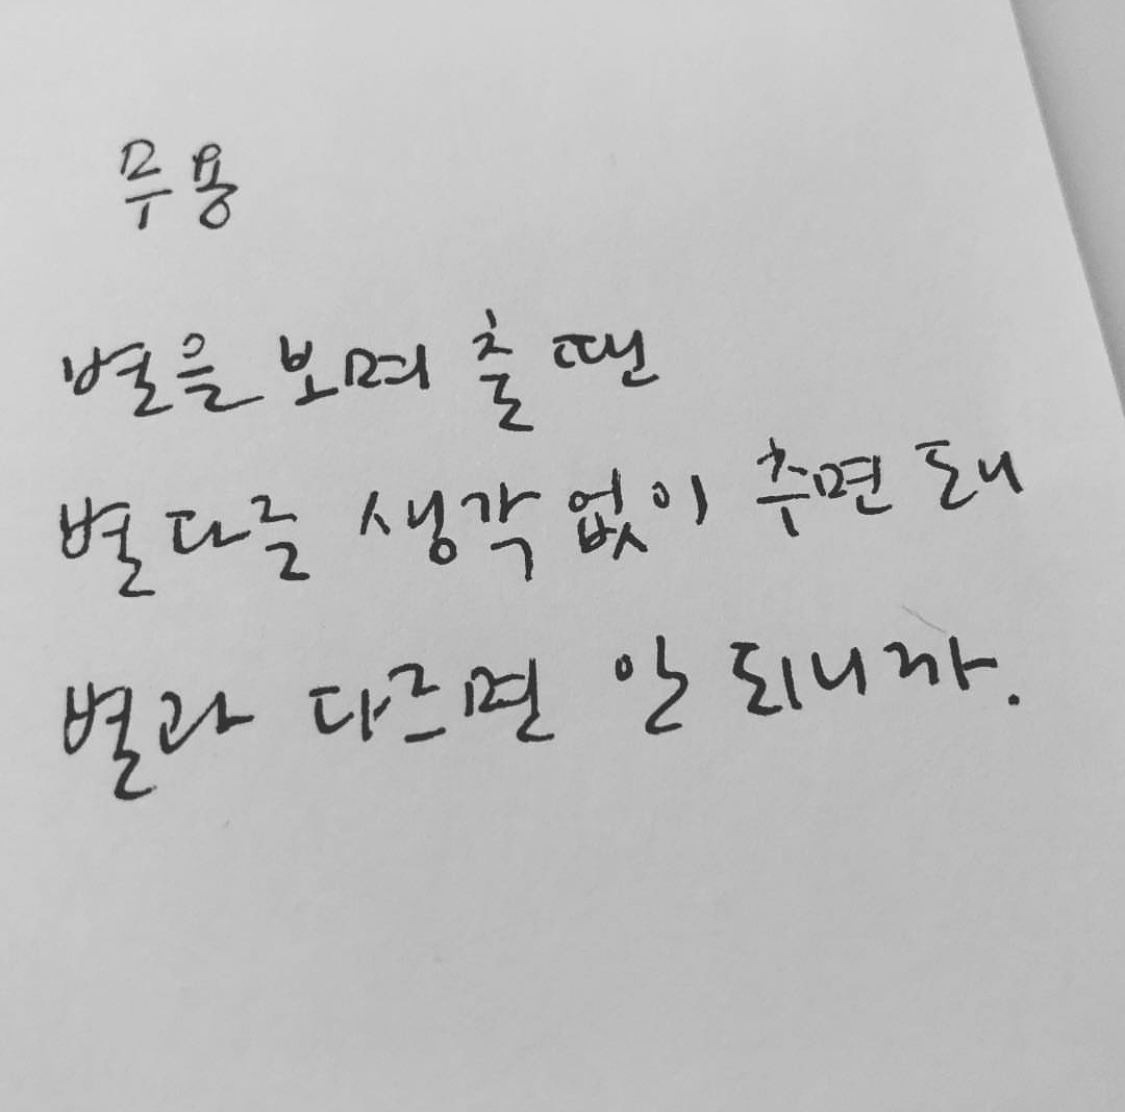 무용
별을 보며 출 땐
별다를 생각 없이 추면 돼
별과 다르면 안 되니까.